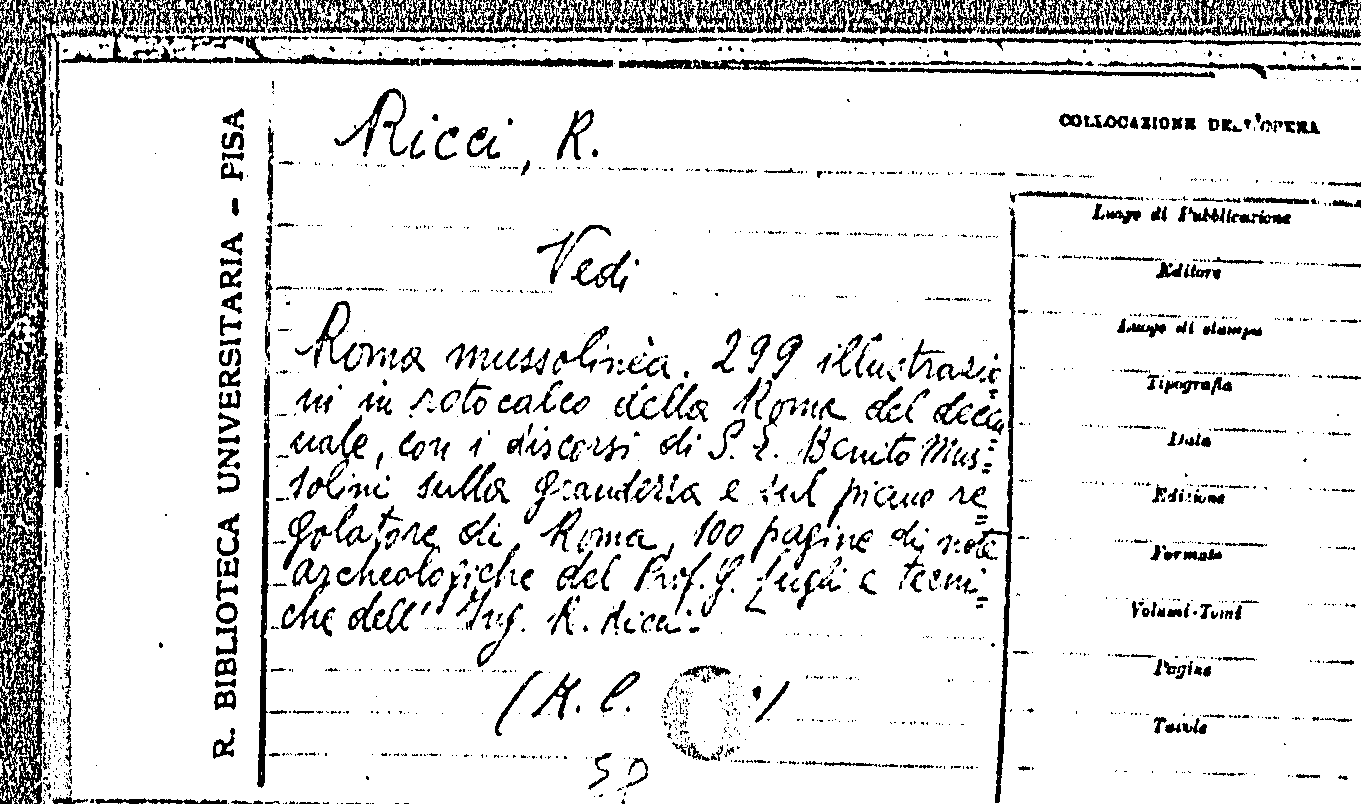 R. BIBLIOTECA UNIVERSITARIA - PISA
Ricci, R.
Vedi
Roma mussolinèa. 299 illustrazio=
ni in rotocalco della Roma del decen=
nale, con i discorsi di S. E. Benito Mus=
solini sulla grandezza e sul piano re=
golatore di Roma, 100 pagine di note
archeologiche del Prof. G. Lugli e tecni=
che dell' Ing. R. Ricci.
COLLOCAZIONE DELL'OPERA
Luogo di Pubblicazione
Editore
Luogo di stampa
Tipografia
Data
Edizione
Formato
Volumi-Tomi
Pagine
Tavole